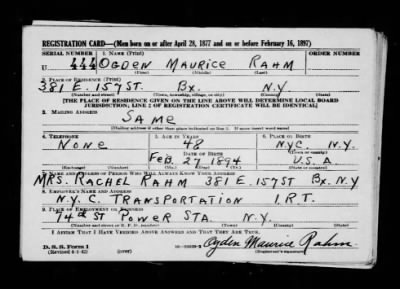 REGISTRATION CARD—(Men born on or after April 28, 1877 and on or before February 16, 1897)
SERIAL NUMBER 1. NAME (Print) ORDER NUMBER
U 444 OGDEN MAURICE RAHM
(First) (Middle) (Last)
2. PLACE OF RESIDENCE (Print)
381 E. 157 ST. BX. N.Y.
(Number and street) (Town, township, village, or city) (County) (State)
[THE PLACE OF RESIDENCE GIVEN ON THE LINE ABOVE WILL DETERMINE LOCAL BOARD
JURISDICTION; LINE 2 OF REGISTRATION CERTIFICATE WILL BE IDENTICAL]
3. MAILING ADDRESS
SAME
[Mailing address if other than place indicated on line 2. If same insert word same]
4. TELEPHONE 5. AGE IN YEARS 6. PLACE OF BIRTH
NONE 48 N.Y.C. N.Y.
DATE OF BIRTH (Town or county)
FEB. 27 1894 U.S.A.
(Mo.) (Day) (Yr.) (State or country)
7. NAME AND ADDRESS OF PERSON WHO WILL ALWAYS KNOW YOUR ADDRESS
MRS. RACHEL RAHM 381 E. 157 ST BX. N.Y
8. EMPLOYER'S NAME AND ADDRESS
N.Y.C. TRANSPORTATION I.R.T.
9. PLACE OF EMPLOYMENT OR BUSINESS
74th ST POWER STA. N.Y.
(Number and street or R. F. D. number) (Town) (County) (State)
I AFFIRM THAT I HAVE VERIFIED ABOVE ANSWERS AND THAT THEY ARE TRUE.
D. S. S. Form 1 Ogden Maurice Rahm
(Revised 4-1-42) (over) (Registrant's signature)